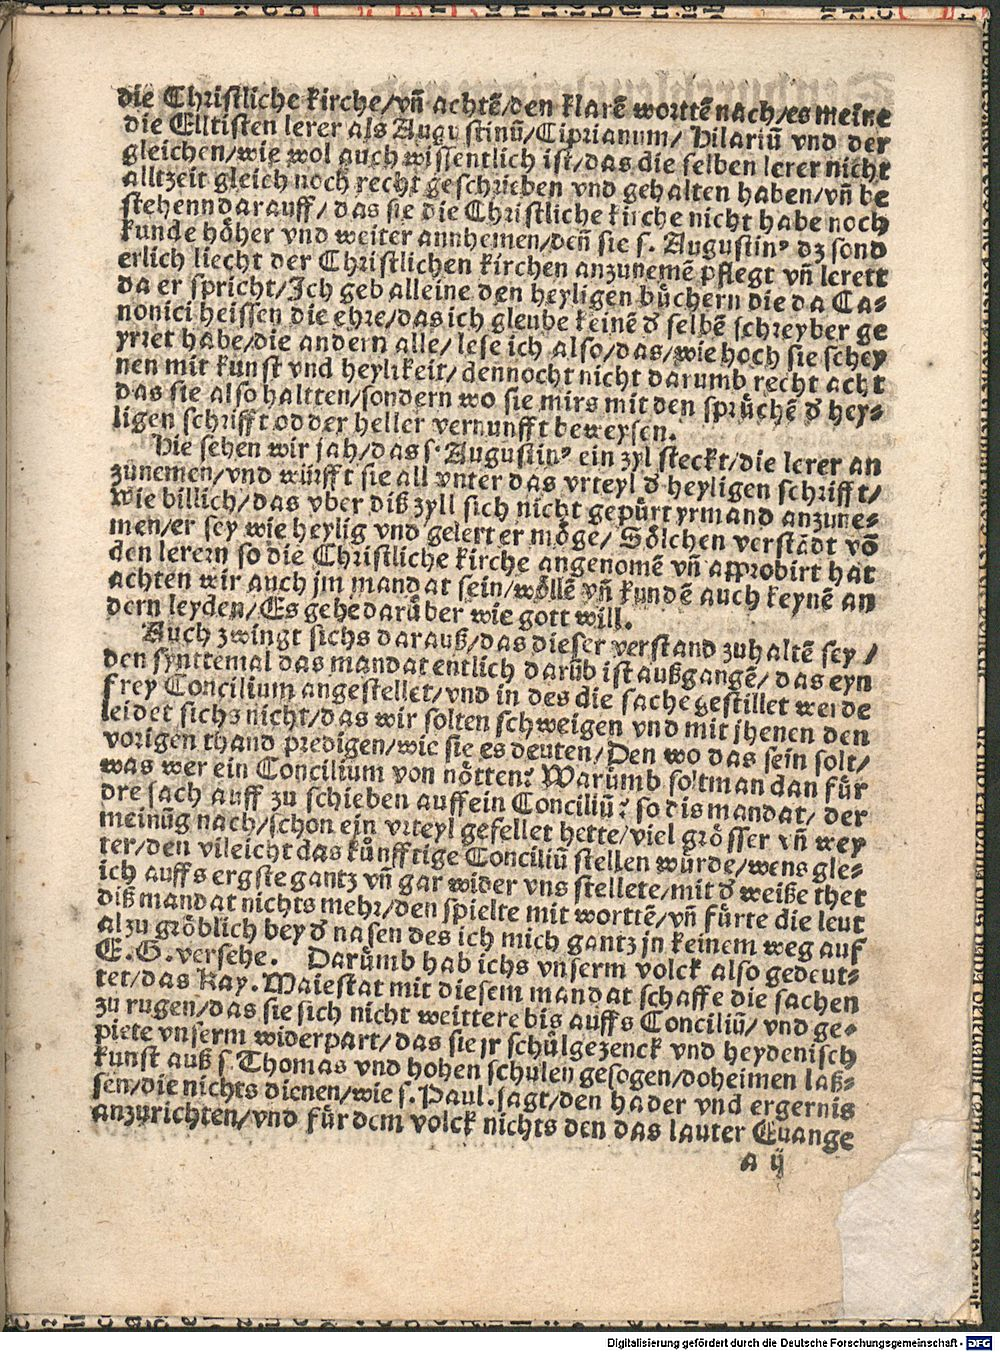 die Christliche kirche/vn̄ achtē/den klarē worttē nach/es meine
die Elltisten lerer als Augustinū/Ciprianum/ Hilariū vnd der
gleichen/wie wol auch wissentlich ist/das die selben lerer nicht
alltzeit gleich noch recht geschrieben vnd gehalten haben/vn̄ be
stehenn darauff/ das sie die Christliche kirche nicht habe noch
kunde höher vnd weiter annhemen/den̄ sie s. Augustinꝰ dz sond
erlich liecht der Christlichen kirchen anzunemē pflegt vn̄ lerett
da er spricht/Ich geb alleine den heyligen büchern die da Ca-
nonici heissen die ehre/das ich gleube keinē ď selbē schreyber ge
yrret habe/die andern alle/ lese ich also/das/wie hoch sie schey
nen mit kunst vnd heylikeit/ dennocht nicht darumb recht acht
das sie also haltten/sondern wo sie mirs mit den sprüchē ď hey-
ligen schrifft od der heller vernunfft beweysen.
Hie sehen wir jah/das s. Augustinꝰ ein zyl steckt/die lerer an
zunemen/vnd würfft sie all vnter das vrteyl ď heyligen schrifft/
wie billich/das vber diß zyll sich nicht gepürt yrmand anzune-
men/er sey wie heylig vnd gelert er möge/ Sölchen verstādt vō
den lerern so die Christliche kirche angenomē vn̄ approbirt hat
achten wir auch jm mandat sein/wöllē vn̄ kundē auch keynē an
dern leyden/Es gehe darüber wie gott will.
Auch zwingt sichs darauß/das dieser verstand zuhaltē sey /
den synttemal das mandat entlich darūb ist außgangē/ das eyn
frey Concilium angestellet/vnd in des die sache gestillet werde
leidet sichs nicht/das wir solten schweigen vnd mit jhenen den
vorigen thand predigen/wie sie es deuten/Den wo das sein solt/
was wer ein Concilium von nötten? Warümb solt man dan für
dre sach auff zu schieben auff ein Conciliū? so dis mandat/ der
meinūg nach/schon ein vrteyl gefellet hette/viel grösser vn̄ wey
ter/den vileicht das künfftige Conciliū stellen würde/wens gle-
ich auffs ergste gantz vn̄ gar wider vns stellete/mit ď weiße thet
diß mandat nichts mehr/den spielte mit worttē/vn̄ fürte die leut
al zu gröblich bey ď nasen des ich mich gantz jn keinem weg auf
E.G.versehe. Darümb hab ichs vnserm volck also gedeut-
tet/das Kay.Maiestat mit diesem mandat schaffe die sachen
zu rugen/das sie sich nicht weittere bis auffs Conciliū/ vnd ge-
piete vnserm widerpart/das sie jr schülgezenck vnd heydenisch
kunst auß s Thomas vnd hohen schulen gesogen/doheimen laß-
sen/die nichts dienen/wie s.Paul.sagt/den hader vnd ergernis
anzurichten/vnd für dem volck nichts den das lauter Euange
a ij
Digitalisierung gefördert durch die Deutsche Forschungsgemeinschaft - DFG